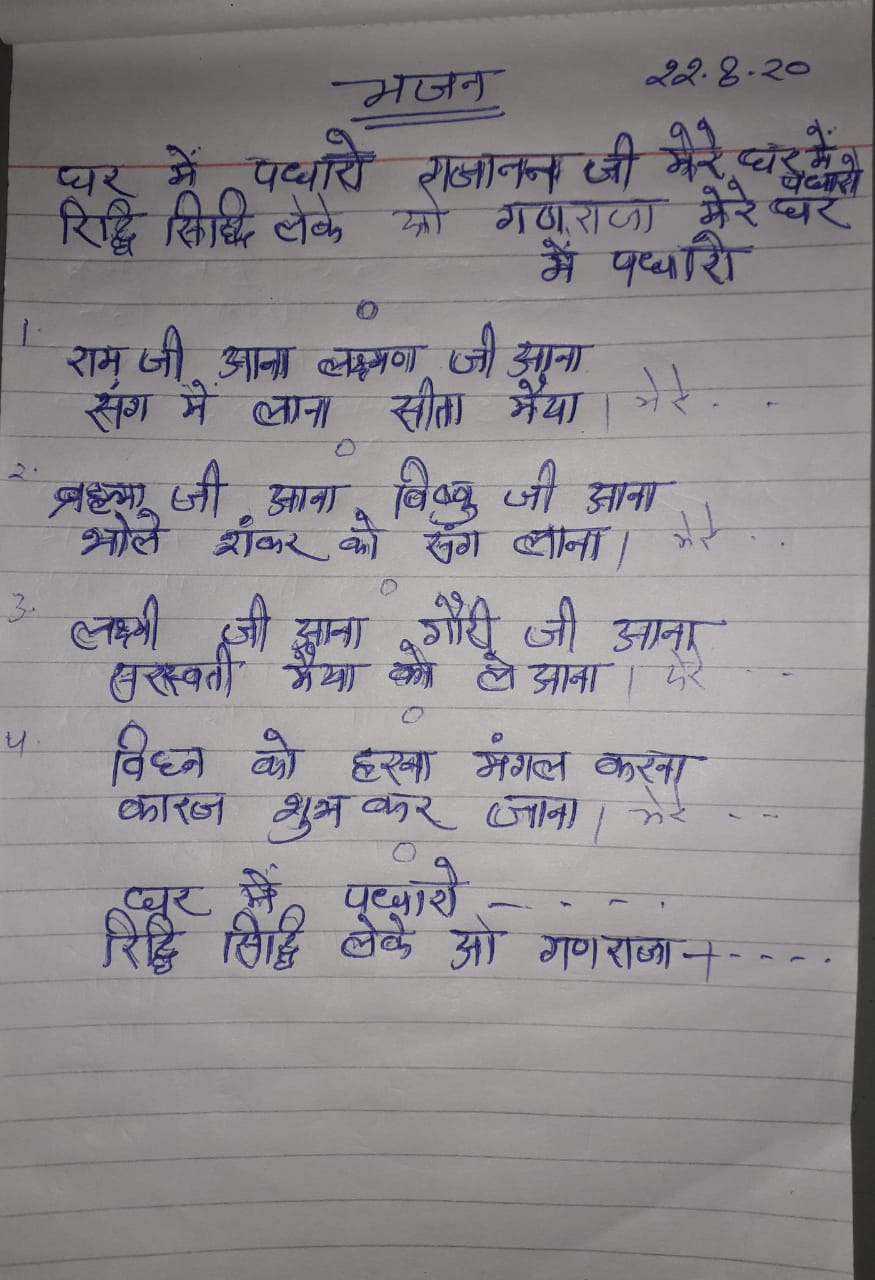 भजन 22.8.20
घर में पधारो गजानन जी मेरे घर में पधारो
रिद्धि सिद्धि लेके ओ गणराजा मेरे घर
में पधारो
1. राम जी आना लक्ष्मण जी आना
संग में लाना सीता मैया । मेरे - -
2. ब्रह्मा जी आना विष्णु जी आना
भोले शंकर को संग लाना । मेरे - -
3. लक्ष्मी जी आना गौरी जी आना
सरस्वती मैया को ले आना । मेरे - -
4. विघ्न को हरना मंगल करना
कारज शुभ कर जाना । मेरे - - -
घर में पधारो - - - - .
रिद्धि सिद्धि लेके ओ गणराजा - - - - -